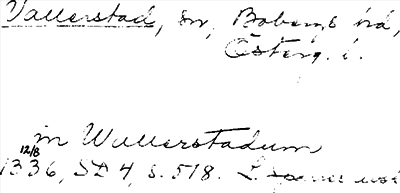 Vallerstad, sn, Bobergs hd,
Österg. l.
in Wallerstadum
12/8
1336, SD 4, s. 518.